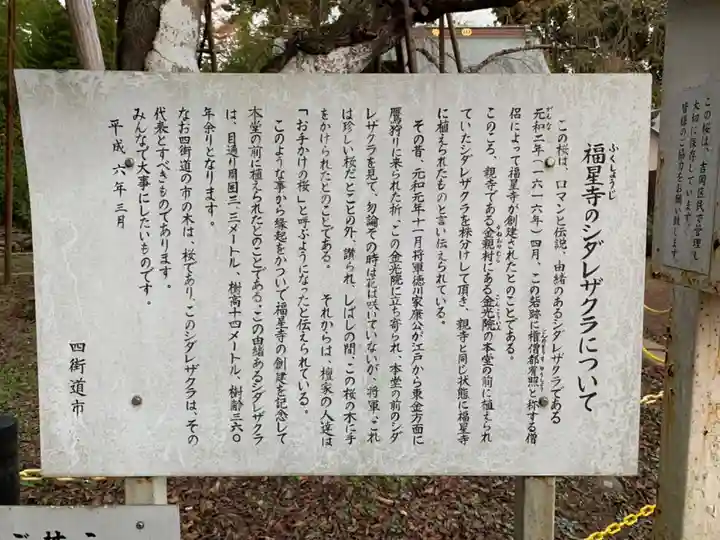 福星寺のシダレザクラについて
ふくしょうじ
この桜は、ロマンと伝説、由緒のあるシダレザクラである
元和二年(一六一六年)四月、この砦跡に権僧都宥照と称する僧
げんな
侶によって福星寺が創建されたとのことである。
このころ、親寺である金親村にある金光院の本堂の前に植えられ
かねおやむら
こんこういん
ていたシダレザクラを株分けして頂き、親寺と同じ状態に福星寺
に植えられたものと言い伝えられている。
その昔、元和元年十一月将軍徳川家康公が江戸から東金方面に
鷹狩りに来られた折、この金光院に立ち寄られ、本堂の前のシダ
レザクラを見て、勿論その時は花は咲いていないが、将軍、これ
は珍しい桜だとことの外、讃られ、しばしの間、この桜の木に手
をかけられたとのことである。 それからは、檀家の人達は
「お手かけの桜」と呼ぶようになったと伝えられている。
このような事から縁起をかついで福星寺の創建を記念して
本堂の前に植えられたとのことである。この由緒あるシダレザクラ
は、目通り周囲三.三メートル、樹高十四メートル、樹齢三六〇
年余りとなります。
なお四街道の市の木は、桜であり、このシダレザクラは、その
代表とすべきものであります。
みんなで大事にしたいものです。
平成六年三月
四街道市
この桜は、吉岡区民で管理し
大切に保存しています。
皆様のご協力をお願い致します